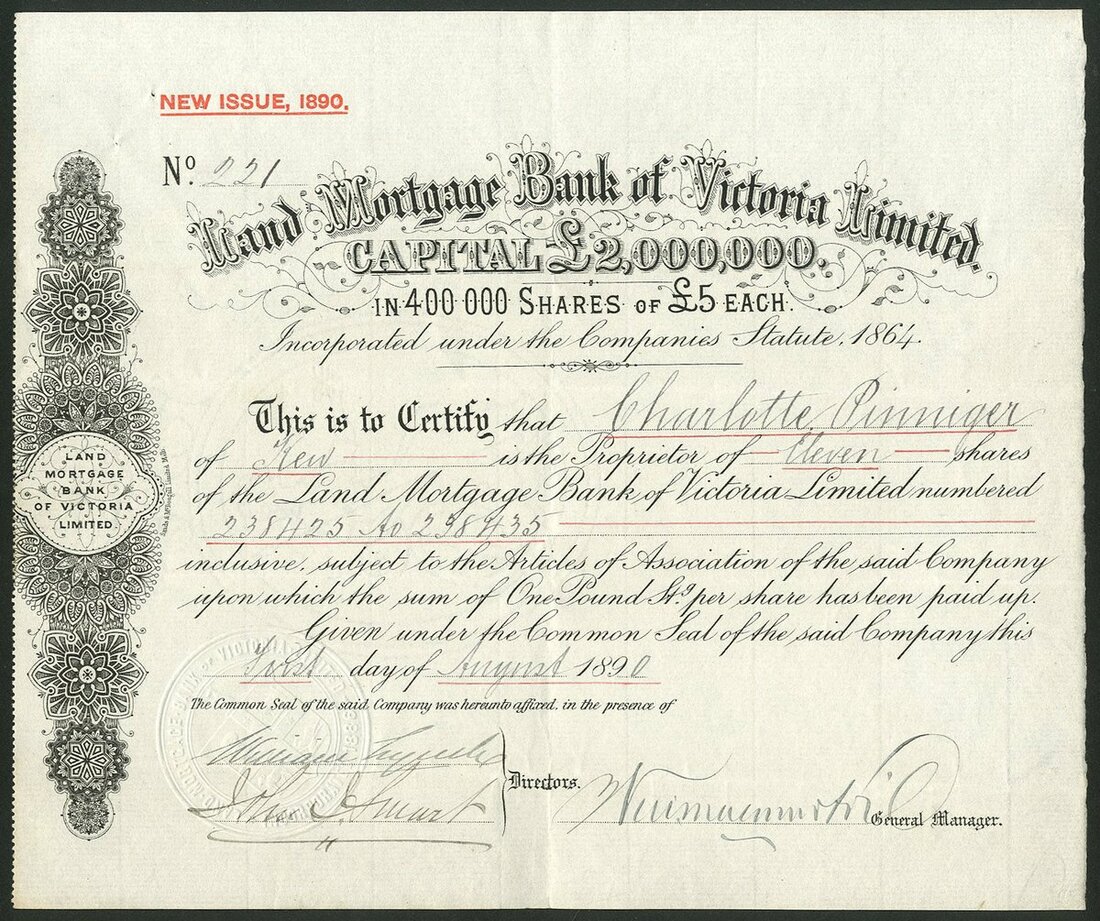 NEW ISSUE, 1890.
No. 221
Land Mortgage Bank of Victoria Limited.
CAPITAL £2,000,000.
IN 400 000 SHARES OF £5 EACH.
Incorporated under the Companies Statute, 1864.
This is to Certify that Charlotte Pinniger
of Kew is the Proprietor of Eleven shares
of the Land Mortgage Bank of Victoria Limited numbered
238425 to 238435
inclusive, subject to the Articles of Association of the said Company
upon which the sum of One Pound Stg per share has been paid up.
Given under the Common Seal of the said Company this
First day of August 1890
The Common Seal of the said Company was hereunto affixed, in the presence of
Directors.
General Manager.
LAND
MORTGAGE
BANK
OF VICTORIA
LIMITED.